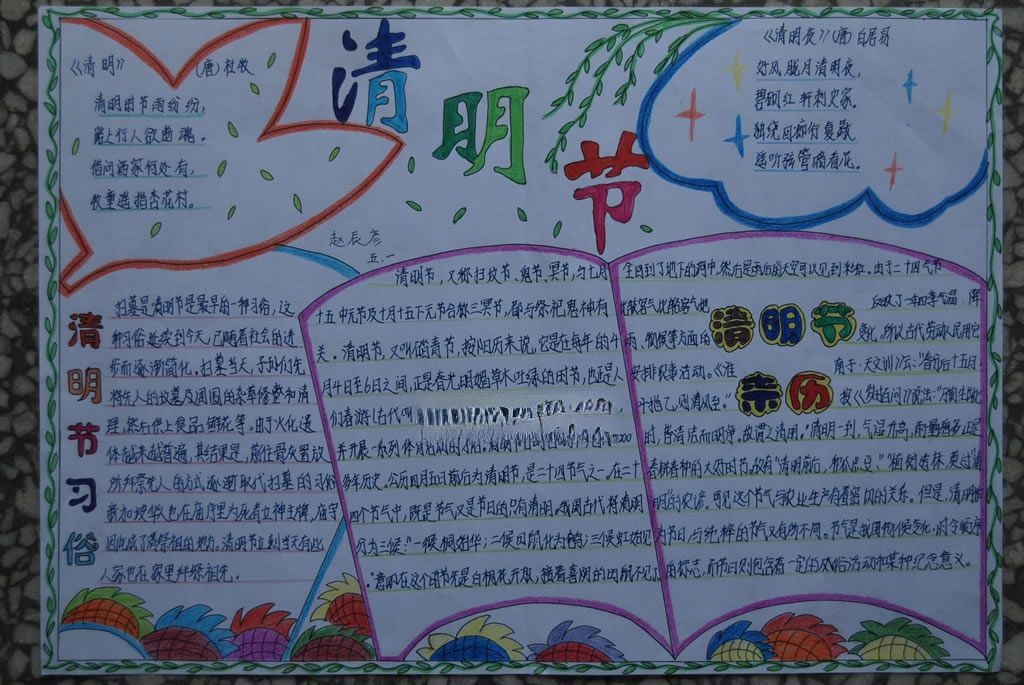 《清明》
(唐)杜牧
清明时节雨纷纷,
路上行人欲断魂。
借问酒家何处有,
牧童遥指杏花村。
清明节
《清明夜》(唐)白居易
好风胧月清明夜,
碧砌红轩刺史家。
独绕回廊行复歇,
遥听弦管暗看花。
赵辰彦
五.一
清明节习俗
扫墓是清明节是最早的一种习俗,这
种习俗延续到今天,已随着社会的进
步而逐渐简化。扫墓当天,子孙们先
将先人的坟墓及周围的杂草修整和清
理,然后供上食品鲜花等。由于火化遗
体越来越普遍,其结果是,前往骨灰置放
拜祭先人的方式逐渐取代扫墓的习俗
新加坡华人也在庙宇里为死者立神主牌,庙宇
因此成了清祭祖的地方。清明节
人家也在家里拜祭祖先。
清明节,又称扫坟节、鬼节、冥节,与七月
十五中元节及十月十五下元节合称三冥节,都与祭祀鬼神有
关。清明节,又叫踏青节,按阳历来说,它是在每年的4
月4日至6日之间,正是春光明媚草木吐绿的时节,也正是人
们春游(古代叫
并开展一系列体育活动的
多年历史。公历四月五日前后为清明节,是二十四节气之一。在二十
四个节气中,既是节气又是节日的只有清明。我国古代将清明
分为三候:“一候桐始华;二候田鼠化为鴽;三候虹始见
。”意即在这个时节先是白桐花开放,接着喜阴的田鼠不见了
全回到了地下的洞中,然后是雨后的天空可以见到彩虹。由于二十四节气
比较客观地
反映了一年四季气温、降
雨、物候等方面的
变化,所以古代劳动人民用它
安排农事活动。《淮
南子·天文训》云:“春分后十五日
清明节
来历
斗指乙,则清风至。”
按《岁时百问》的说法:“万物生长此
时,皆清洁而明净。故谓之清明。”清明一到,气温升高,雨量增多,正是
春耕春种的大好时节。故有“清明前后,种瓜点豆”“植树造林,莫过清
明”的农谚。可见这个节气与农业生产有着密切的关系。但是,清明作
为节日,与纯粹的节气又有所不同。节气是我国物候变化、时令顺序
的标志,而节日则包含着一定的风俗活动和某种纪念意义。